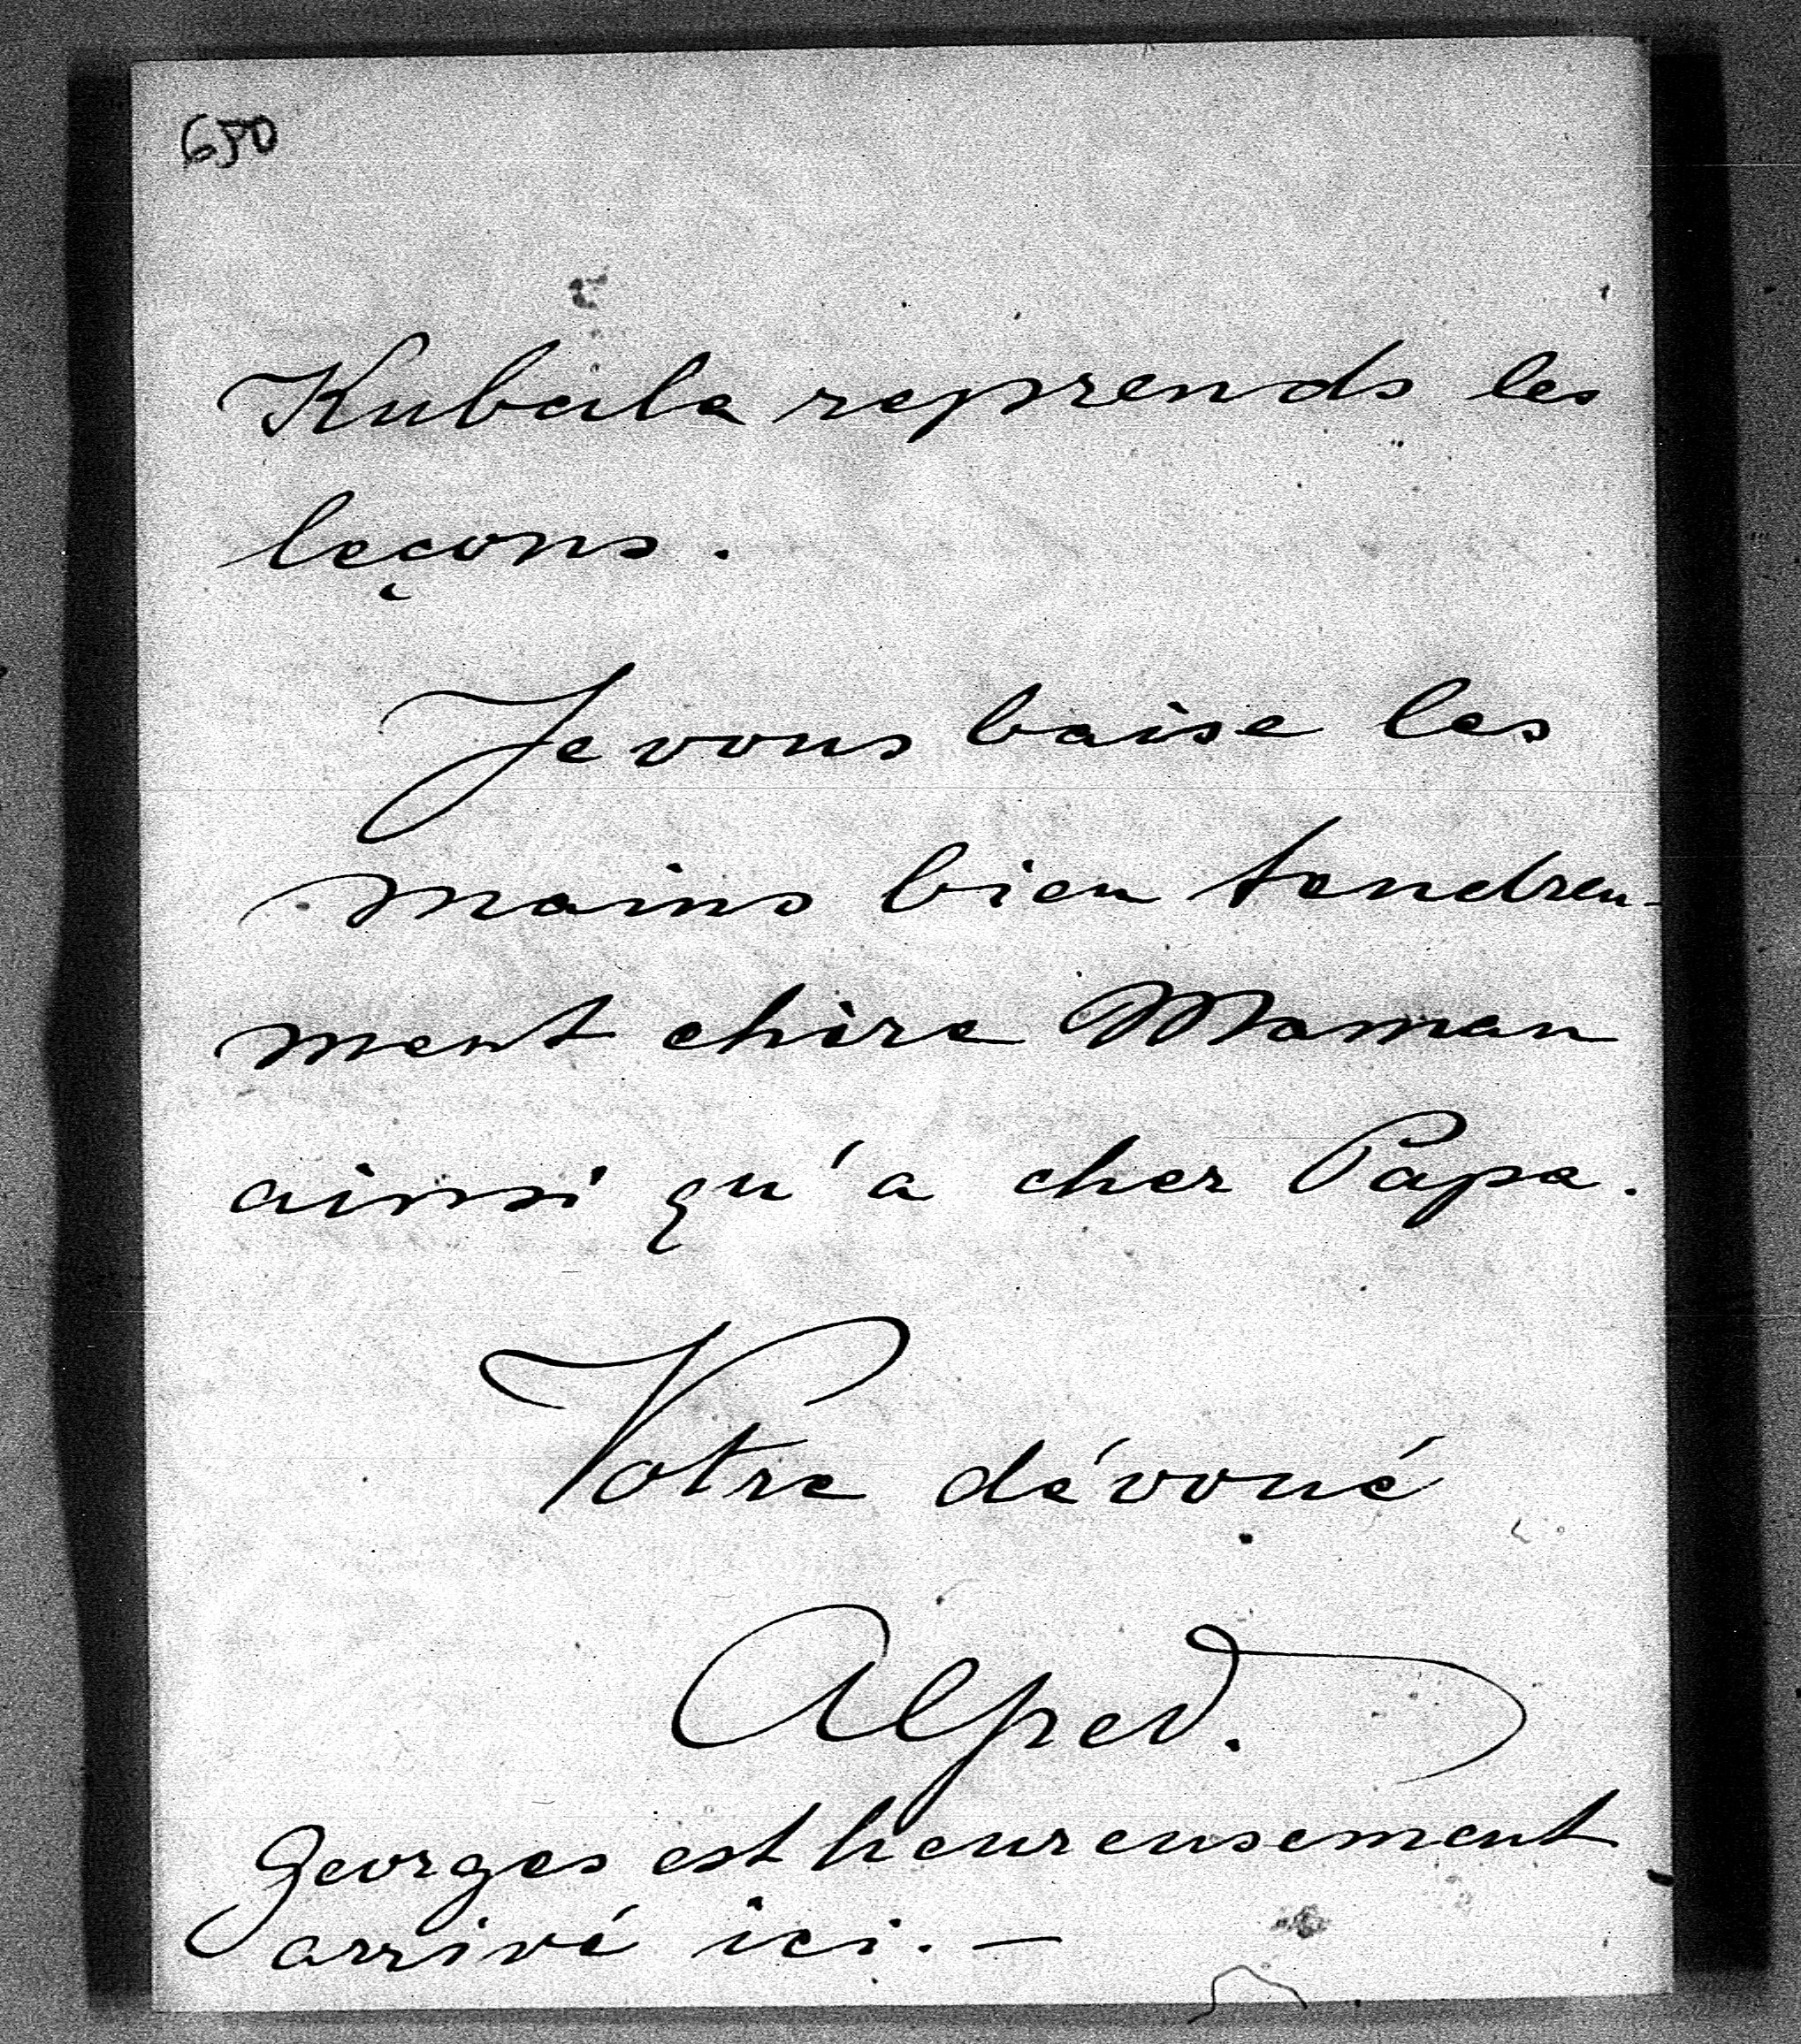 650
Kubala reprends les
leçons.
Je vous baise les
mains bien tendrem-
ment chère Maman
ainsi qu'a cher Papa.
Votre dévoué
Alfred.
Georges est heureusement
arrivé ici. —